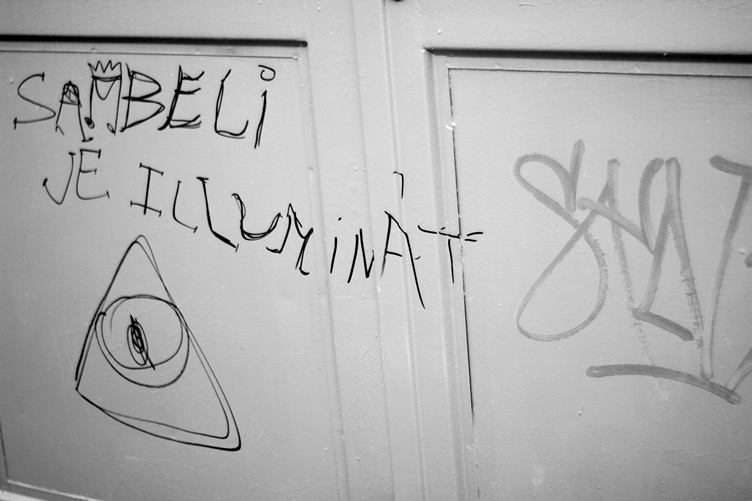 SAMBELi
JE ILLUMiNÁT